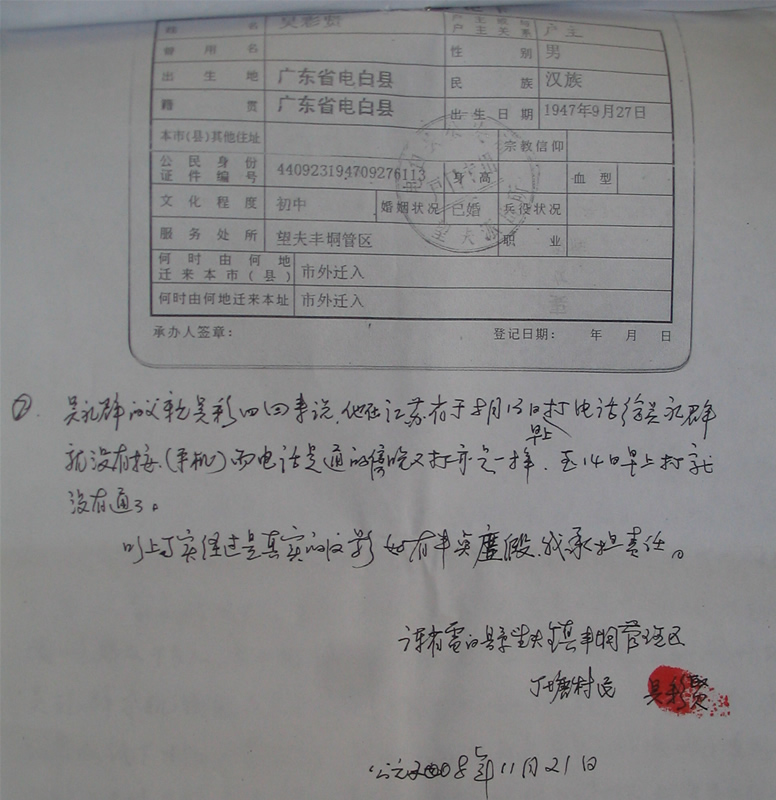 姓 名 吴彩贤 户主或与户主关系 户主
曾用名 性别 男
出生地 广东省电白县 民族 汉族
籍贯 广东省电白县 出生日期 1947年9月27日
本市(县)其他住址 宗教信仰
公民身份证件编号 440923194709276113 身高 血型
文化程度 初中 婚姻状况 已婚 兵役状况
服务处所 望夫丰垌管区 职业
何时由何地迁来本市(县) 市外迁入
何时由何地迁来本址 市外迁入
承办人签章: 登记日期: 年 月 日
②. 吴永群的父亲吴彩四回来说,他在江苏省于8月13日早上打电话给吴永群
就没有接,(手机)而电话是通的傍晚又打亦是一样,至14日早上打就
没有通了。
以上事实经过是真实的 如有 虚假,我承担责任。
电白县望夫镇丰垌管理区
丁塘村民 吴彩贤
公元2008年11月21日